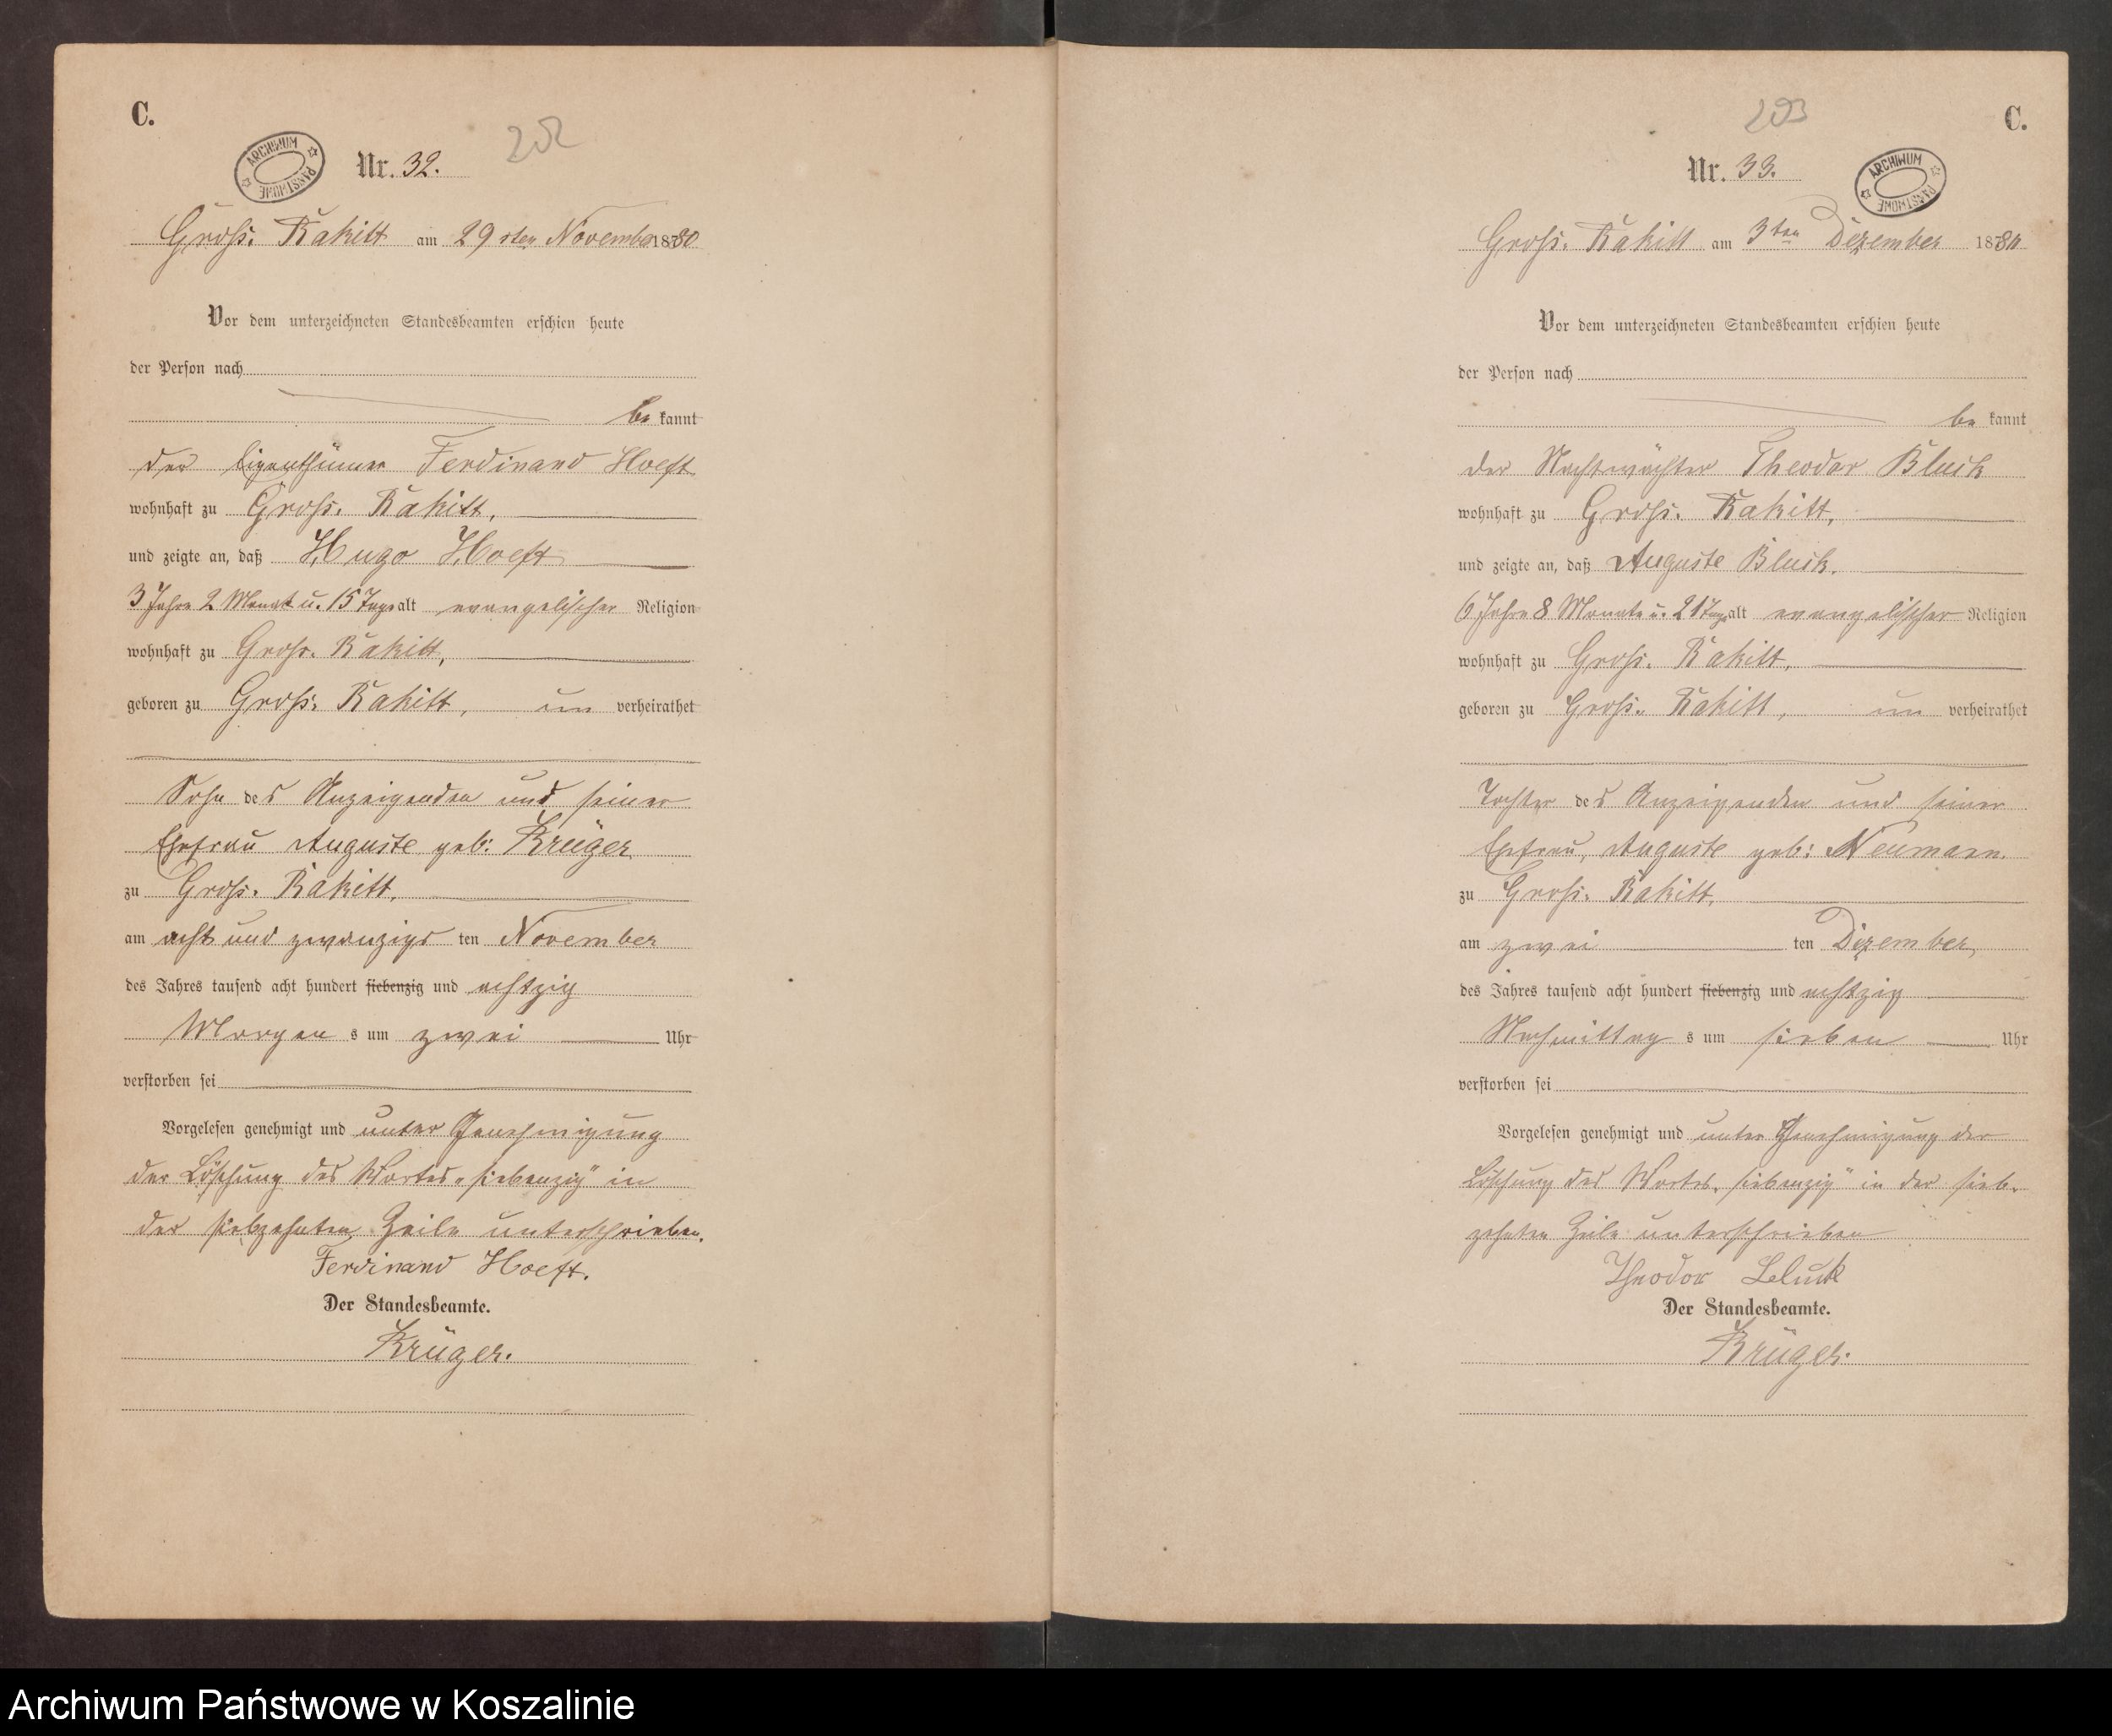 C.
202
ARCHIWUM PAŃSTWOWE
Nr. 32.
Gross. Rakitt am 29 sten November 1880
Vor dem unterzeichneten Standesbeamten erschien heute
der Person nach
be kannt
der Eigenthümer Ferdinand Hoeft
wohnhaft zu Gross. Rakitt,
und zeigte an, daß Hugo Hoeft
3 Jahre 2 Monat u. 15 Tage alt evangelischer Religion
wohnhaft zu Gross. Rakitt,
geboren zu Gross. Rakitt, un verheirathet
Sohn des Anzeigenden und seiner
Ehefrau Auguste geb: Krüger
zu Gross. Rakitt,
am acht und zwanzigs ten November
des Jahres tausend acht hundert siebenzig und achtzig
Morgen s um zwei Uhr
verstorben sei
Vorgelesen genehmigt und unter Genehmigung
der Löschung des Wortes „siebenzig" in
der siebzehnten Zeile unterschrieben.
Ferdinand Hoeft.
Der Standesbeamte.
Krüger.
203
C.
Nr. 33.
ARCHIWUM PAŃSTWOWE
Gross. Rakitt am 3ten Dezember 1880
Vor dem unterzeichneten Standesbeamten erschien heute
der Person nach
be kannt
der Nachtwächter Theodor Bluck
wohnhaft zu Gross. Rakitt,
und zeigte an, daß Auguste Bluck.
6 Jahre 8 Monate u. 21 Tage alt evangelischer Religion
wohnhaft zu Gross. Rakitt,
geboren zu Gross. Rakitt, un verheirathet
Tochter des Anzeigenden und seiner
Ehefrau, Auguste geb: Neumann.
zu Gross. Rakitt,
am zwei ten Dezember
des Jahres tausend acht hundert siebenzig und achtzig
Nachmittag s um sieben Uhr
verstorben sei
Vorgelesen genehmigt und unter Genehmigung der
Löschung des Wortes „siebenzig" in der sieb-
zehnten Zeile unterschrieben
Theodor Bluck
Der Standesbeamte.
Krüger.
Archiwum Państwowe w Koszalinie